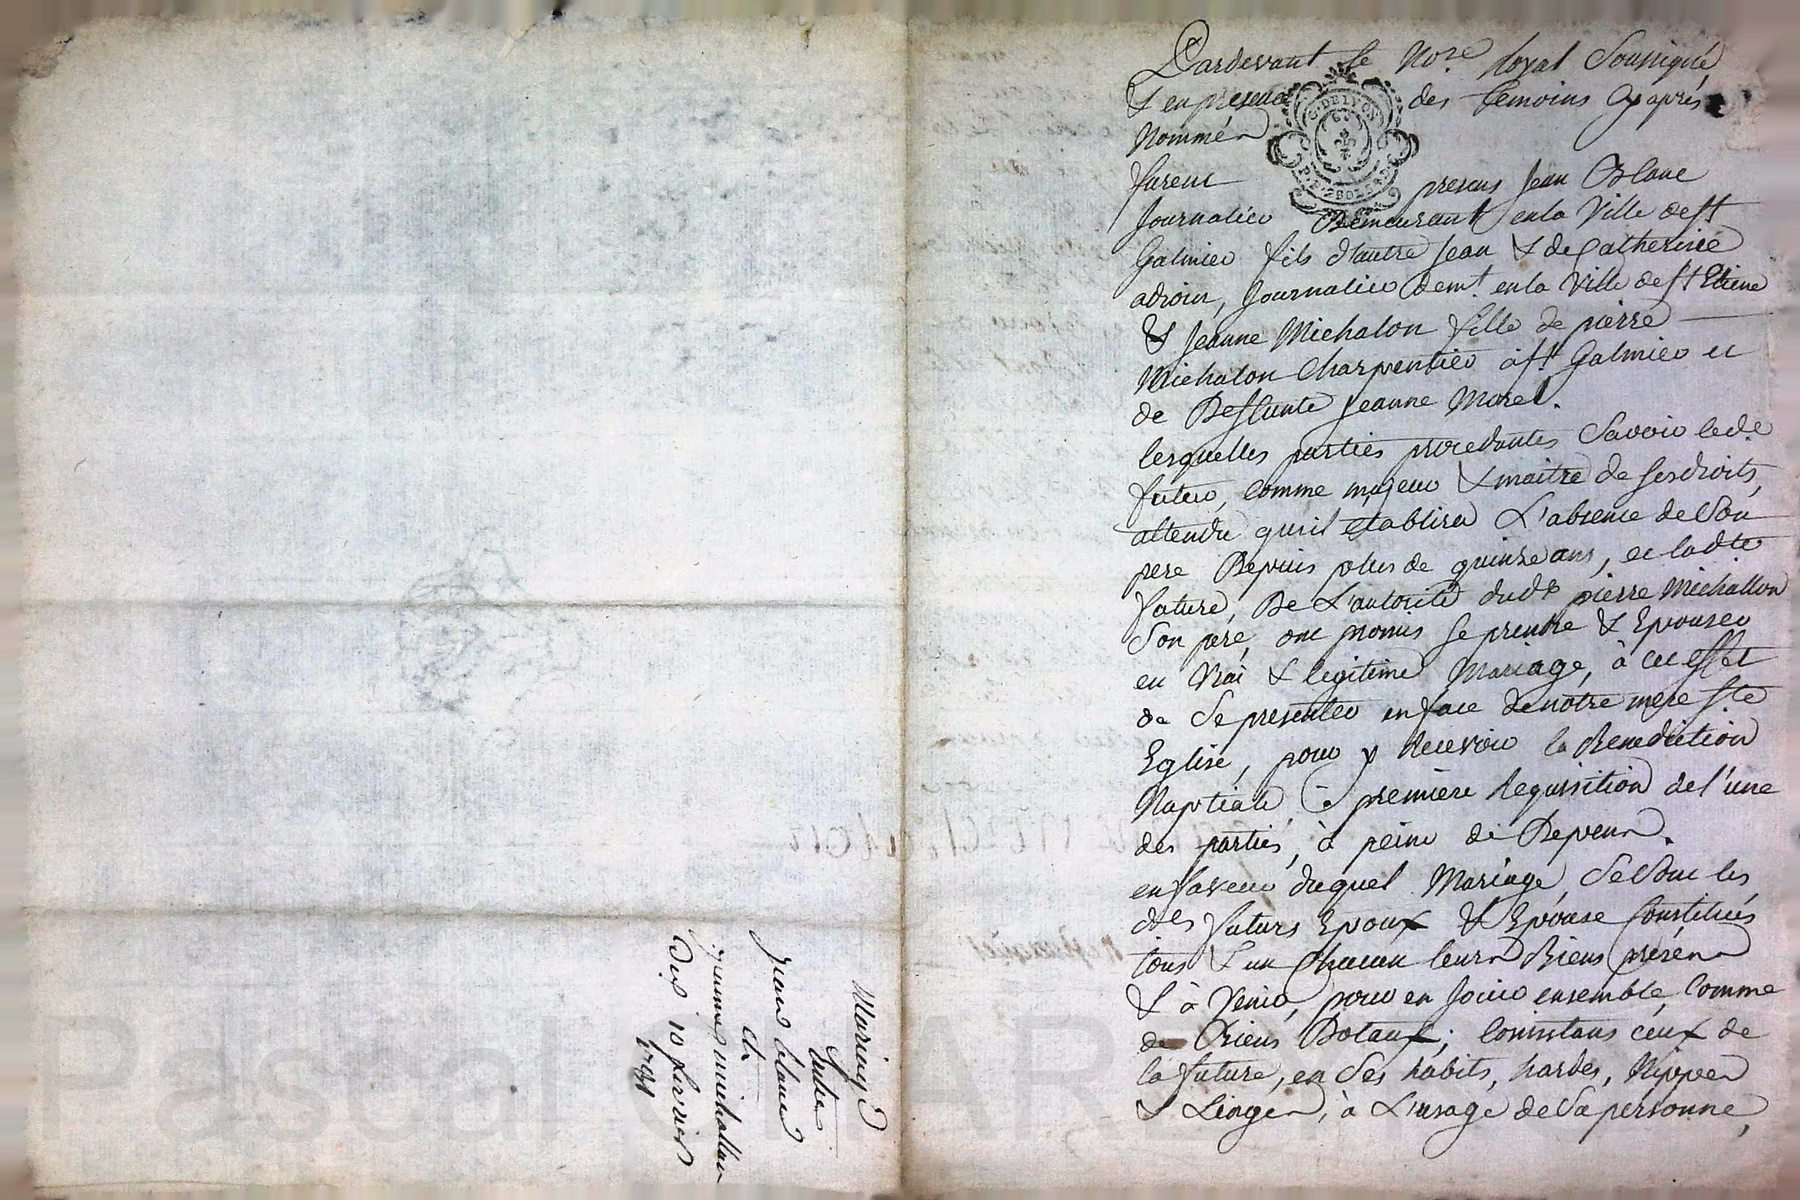 Mariage
Entre
jean blanc
et
jeanne michallon
Du 10 fevrier
1791
Pardevant le Nore. Royal Soussigné
& en presence des temoins Cy après
Nommés
furent presens Jean Blanc
Journalier Demeurant en la Ville de St
Galmier fils d'autre Jean & de Catherine
journalier demt. en la Ville de St Etiene
& Jeanne Michalon fille de pierre
Michalon Charpentier à St Galmier et
de Deffunte Jeanne Morel.
lesquelles parties procedantes Savoir led.
futur, comme majeur & maitre de ses droits,
attendu qu'il etablira L'absence de Son
pere Depuis plus de quinze ans, et ladte
future, De L'autorité dudt pierre Michallon
Son pere, ont promis se prendre & Epouser
en Vrai & legitime Mariage, à cet effet
de Se presenter en face de notre mere Ste
Eglise, pour y Recevoir la Benediction
Nuptiale, à première Requisition de l'une
des parties, à peine de Depens.
en faveur duquel Mariage, Se Sont les
dts futurs Epoux & Epouse Constitués
tous & un Chacun leurs Biens présens
& à Venir, pour en Jouir ensemble, Comme
de Biens Dotaux; Consistans ceux de
la future, en Ses habits, hardes, Nippes
& Linges, à L'usage de Sa personne,
G. DE LYON
Pascal